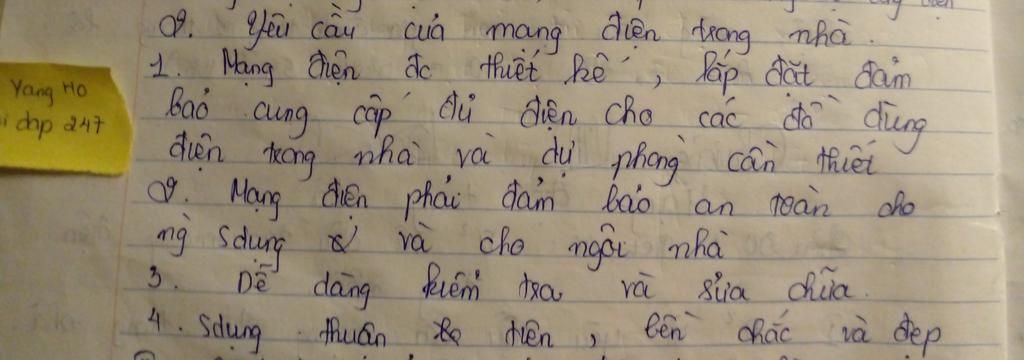 điện
2. Yêu cầu của mạng điện trong nhà.
1. Mạng điện đc thiết kế, lắp đặt đảm
Yang Ho
i đap 247
bảo cung cấp đủ điện cho các đồ dùng
điện trong nhà và dự phòng cần thiết
2. Mạng điện phải đảm bảo an toàn cho
ng` sdụng và cho ngôi nhà
3. Dễ dàng kiểm tra và sửa chữa.
4. Sdụng thuận tiện, bền chắc và đẹp